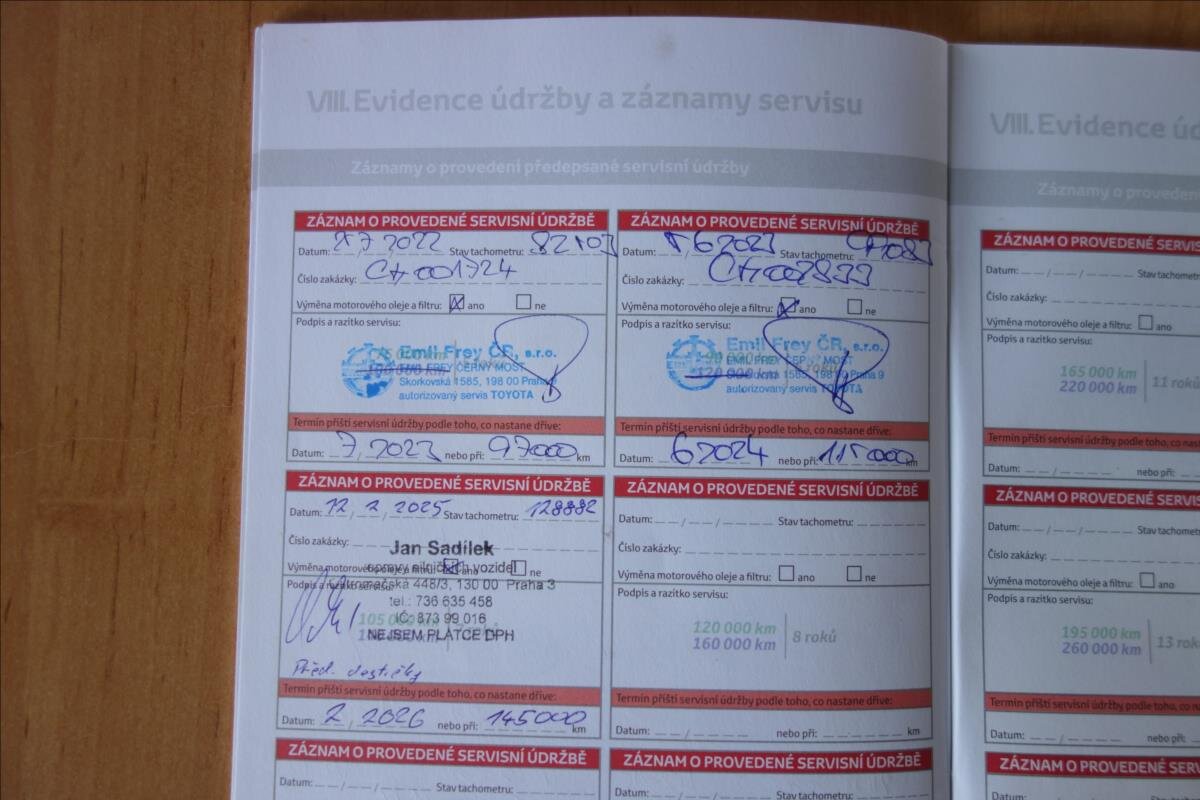 VIII. Evidence údržby a záznamy servisu
Záznamy o provedení předepsané servisní údržby
ZÁZNAM O PROVEDENÉ SERVISNÍ ÚDRŽBĚ
Datum: 7 2022 Stav tachometru: 82103
Číslo zakázky:
Výměna motorového oleje a filtru: ano ne
Podpis a razítko servisu:
Emil Frey ČR, s.r.o.
EMIL FREY ČERNÝ MOST
Skorkovská 1585, 198 00 Praha 9
autorizovaný servis TOYOTA
Termín příští servisní údržby podle toho, co nastane dříve:
Datum: 7, 2023 nebo při: 97000 km
ZÁZNAM O PROVEDENÉ SERVISNÍ ÚDRŽBĚ
Datum: 6 2023 Stav tachometru:
Číslo zakázky:
Výměna motorového oleje a filtru: ano ne
Podpis a razítko servisu:
Emil Frey ČR, s.r.o.
EMIL FREY ČERNÝ MOST
1585, 198 00 Praha 9
autorizovaný servis TOYOTA
Termín příští servisní údržby podle toho, co nastane dříve:
Datum: 6 2024 nebo při: 115000 km
ZÁZNAM O PROVEDENÉ SERVISNÍ ÚDRŽBĚ
Datum: 12, 2, 2025 Stav tachometru: 128882
Číslo zakázky:
Jan Sadílek
Výměna motorového oleje a filtru: ano ne
opravy silničních vozidel
Podpis a razítko servisu:
448/3, 130 00 Praha 3
tel.: 736 635 458
IČ: 873 99 016
105 000 km
NEJSEM PLÁTCE DPH
Před. destičky
Termín příští servisní údržby podle toho, co nastane dříve:
Datum: 2, 2026 nebo při: 145000 km
ZÁZNAM O PROVEDENÉ SERVISNÍ ÚDRŽBĚ
Datum: Stav tachometru:
Číslo zakázky:
Výměna motorového oleje a filtru: ano ne
Podpis a razítko servisu:
120 000 km
160 000 km
8 roků
Termín příští servisní údržby podle toho, co nastane dříve:
Datum: nebo při: km
ZÁZNAM O PROVEDENÉ SERVISNÍ ÚDRŽBĚ
Datum: Stav tachometru:
ZÁZNAM O PROVEDENÉ SERVISNÍ ÚDRŽBĚ
Datum: Stav tachometru:
VIII. Evidence úd
Záznamy o proveden
ZÁZNAM O PROVEDENÉ SERVIS
Datum: Stav tachomet
Číslo zakázky:
Výměna motorového oleje a filtru: ano
Podpis a razítko servisu:
165 000 km
220 000 km
11 roků
Termín příští servisní údržby podle toho, co nas
Datum: nebo při:
ZÁZNAM O PROVEDENÉ SERVIS
Datum: Stav tachomet
Číslo zakázky:
Výměna motorového oleje a filtru: ano
Podpis a razítko servisu:
195 000 km
260 000 km
13 rok
Termín příští servisní údržby podle toho, co nas
Datum: nebo při:
ZÁZNAM O PROVEDENÉ SERVIS
Datum: Stav tachomet